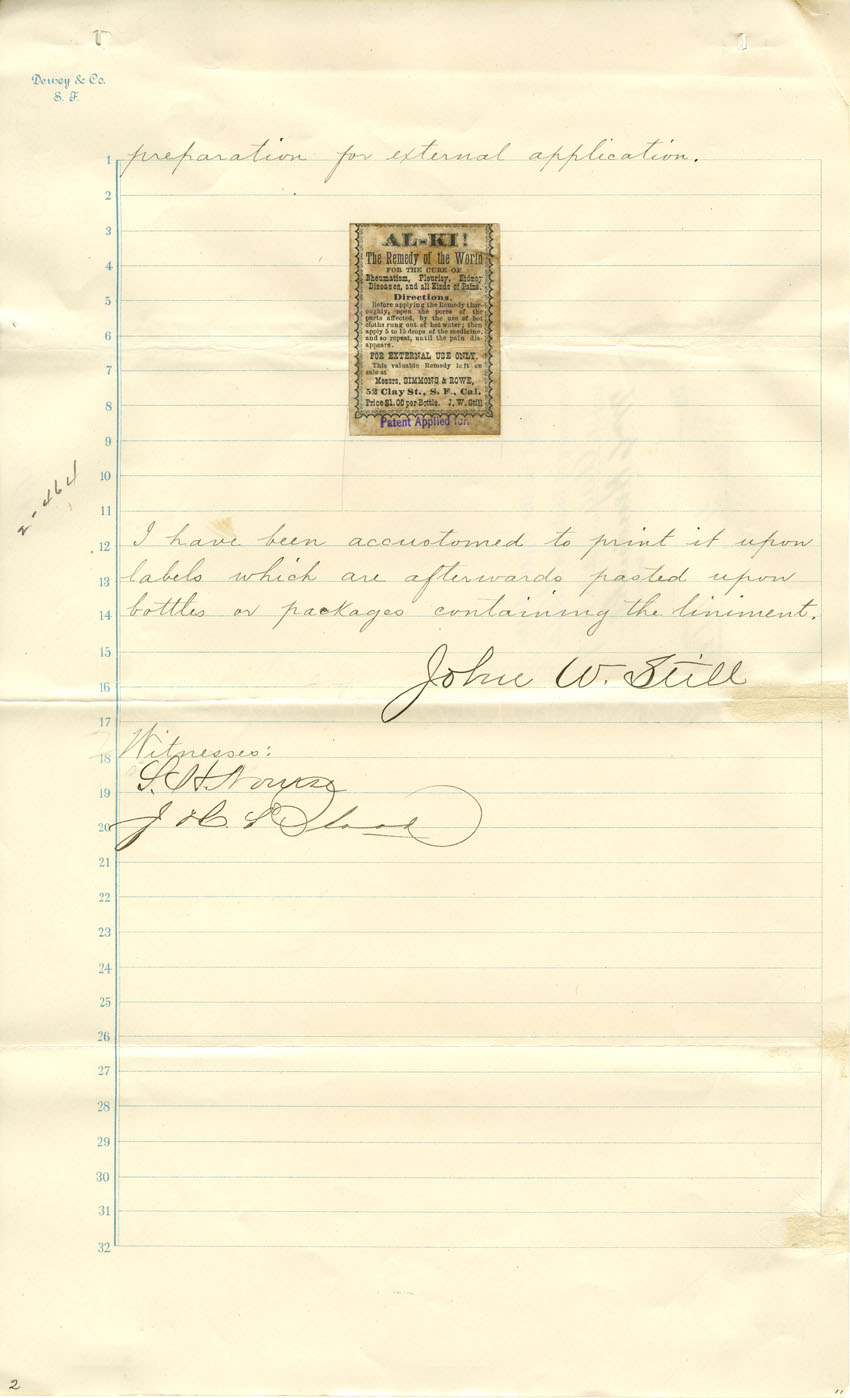 Dewey & Co.
S. F.
1 preparation for external application.
2
3
4
5
6
7
8
9
10
11
AL-KI!
The Remedy of the World
FOR THE CURE OF
Rheumatism, Pleurisy, Kidney
Diseases, and all Kinds of Pains.
Directions.
Before applying the Remedy thor-
oughly, open the pores of the
parts affected, by the use of hot
cloths rung out of hot water; then
apply 5 to 15 drops of the medicine,
and so repeat, until the pain dis-
appears.
FOR EXTERNAL USE ONLY.
This valuable Remedy left on
sale at
Messrs, SIMMONS & ROWE,
52 Clay St., S. F., Cal.
Price $1.00 per Bottle. J. W. Still
Patent Applied for.
2-464
12 I have been accustomed to print it upon
13 labels which are afterwards pasted upon
14 bottles or packages containing the liniment.
15
16 John W. Still
17
18 Witnesses:
19 S. H. Nourse
20
21
22
23
24
25
26
27
28
29
30
31
32
2